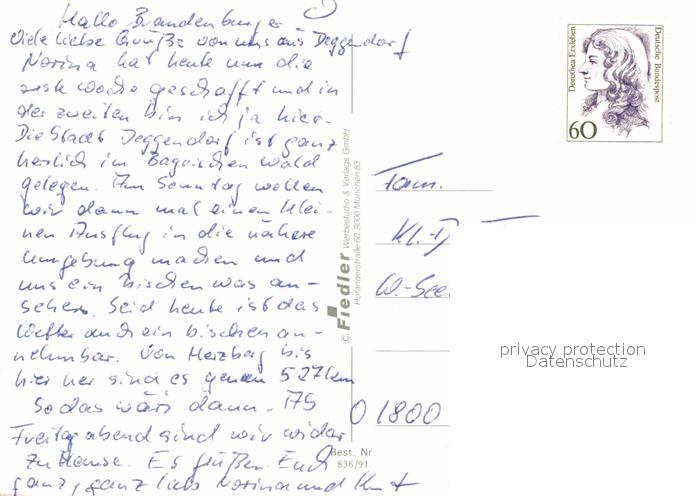 Hallo Brandenburger
Viele liebe Grüße von uns aus Deggendorf
Norina hat heute nun die
erste Woche geschafft und in
der zweiten bin ich ja hier.
Die Stadt Deggendorf ist ganz
herlich im Bayrischen Wald
gelegen. Am Sonntag wollen
wir dann mal einen klei-
nen Ausflug in die nähere
Umgebung machen und
uns ein bischen was an-
sehen. Seid heute ist das
Wetter auch ein bischen an-
nehmbar. Von Herzberg bis
hier her sind es genau 527km
So das wärs dann.
Freitag abend sind wir wider
zu Hause. Es grüßen Euch
ganz, ganz lieb Norina und
© Fiedler Werbestudio & Verlags GmbH
Hofangerstraße 60 8000 München 83
Best. Nr.
836/91
Dorothea Erxleben
Deutsche Bundespost
60
Fam.
W.-See
O 1800
privacy protection
Datenschutz